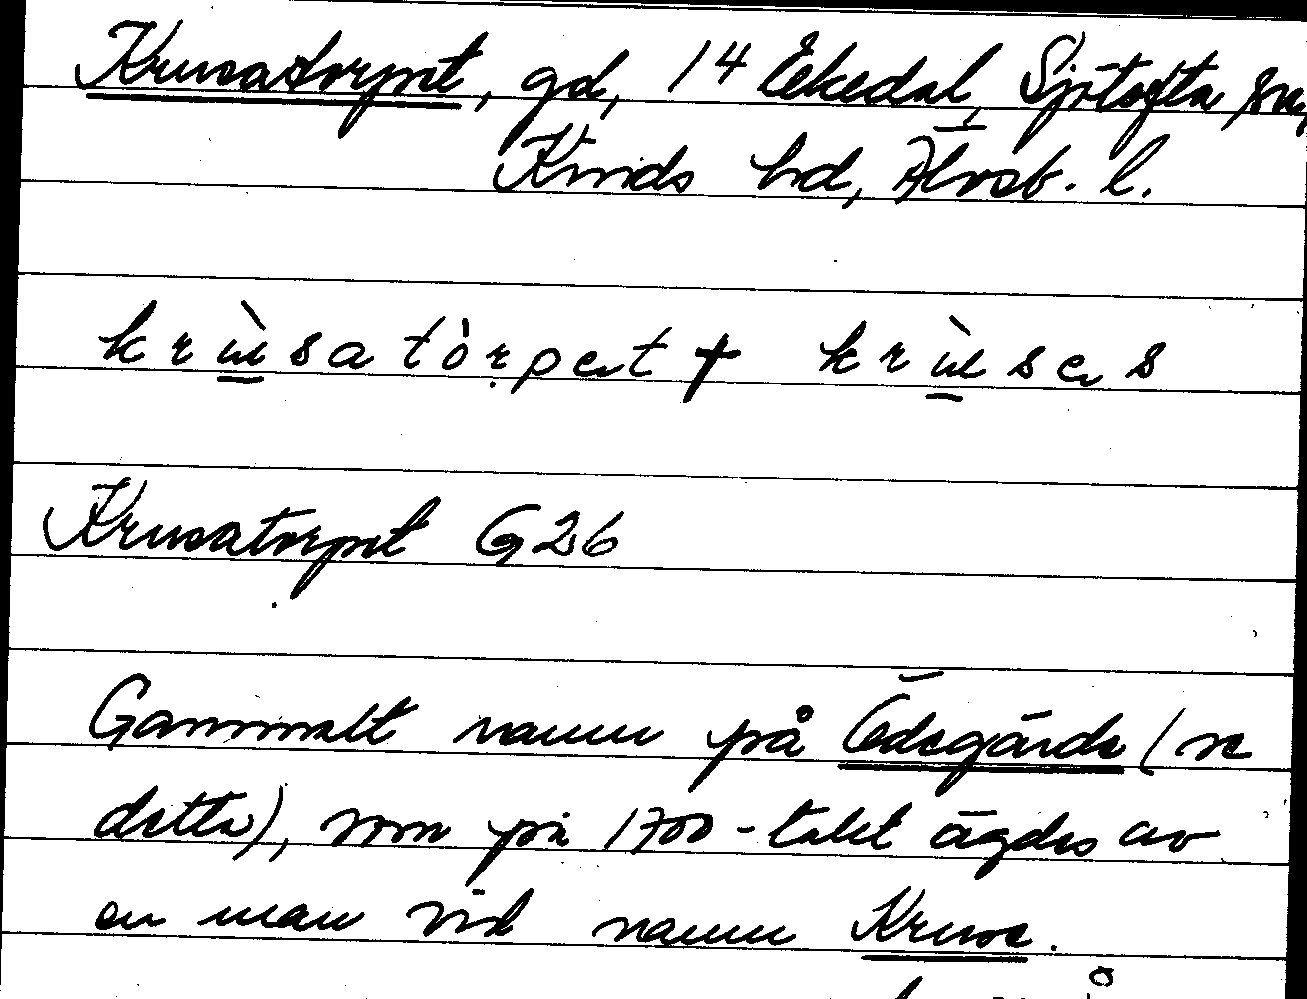 Krusatorpet, gd, 14 Ekedal, Sjötofta sn,
Kinds hd, Älvsb. l.
krùsatòrpet + krùses
Krusatorpet G26
Gammalt namn på Ödegärde (se
detta), som på 1700-talet ägdes av
en man vid namn Kruse.